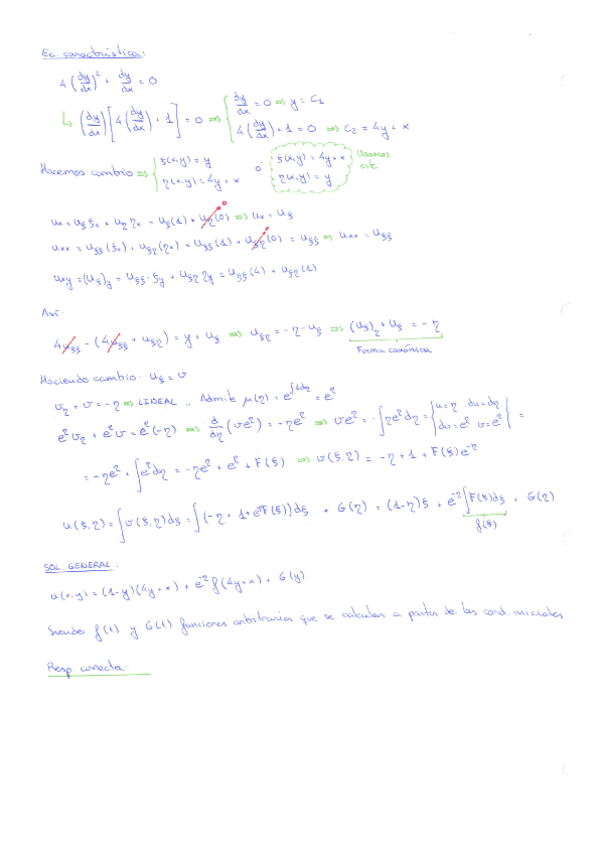 Ec. característica:
4(dy/dx)² + dy/dx = 0
↳ (dy/dx)[4(dy/dx) + 1] = 0 ⇒ { dy/dx = 0 ⇒ y = C₁
4(dy/dx) + 1 = 0 ⇒ C₂ = 4y + x
Hacemos cambio ⇒ { ξ(x,y) = y
η(x,y) = 4y + x
o
ξ(x,y) = 4y + x
η(x,y) = y
Usamos
este
ux = uξ ξx + uη ηx = uξ(1) + uη(0) ⇒ ux = uξ
0
uxx = uξξ(ξx) + uξη(ηx) = uξξ(1) + uξη(0) = uξξ ⇒ uxx = uξξ
uxy = (uξ)y = uξξ · ξy + uξη ηy = uξξ(4) + uξη(1)
Así:
4uξξ - (4uξξ + uξη) = y + uξ ⇒ uξη = -η - uξ ⇒ (uξ)η + uξ = -η
Forma canónica
Haciendo cambio: uξ = v
vη + v = -η ⇒ LINEAL, Admite μ(η) = e^∫1dη = e^η
e^η vη + e^η v = e^η(-η) ⇒ d/dη (v e^η) = -ηe^η ⇒ ve^η = -∫ηe^η dη = { u = η du = dη
dv = e^η v = e^η } =
= -ηe^η + ∫e^η dη = -ηe^η + e^η + F(ξ) ⇒ v(ξ,η) = -η + 1 + F(ξ)e^-η
u(ξ,η) = ∫v(ξ,η)dξ = ∫(-η + 1 + e^-η F(ξ))dξ + G(η) = (1-η)ξ + e^-η ∫F(ξ)dξ + G(η)
f(ξ)
SOL. GENERAL:
u(x,y) = (1-y)(4y+x) + e^-y f(4y+x) + G(y)
Siendo f(t) y G(t) funciones arbitrarias que se calculan a partir de las cond. iniciales
Resp. correcta: